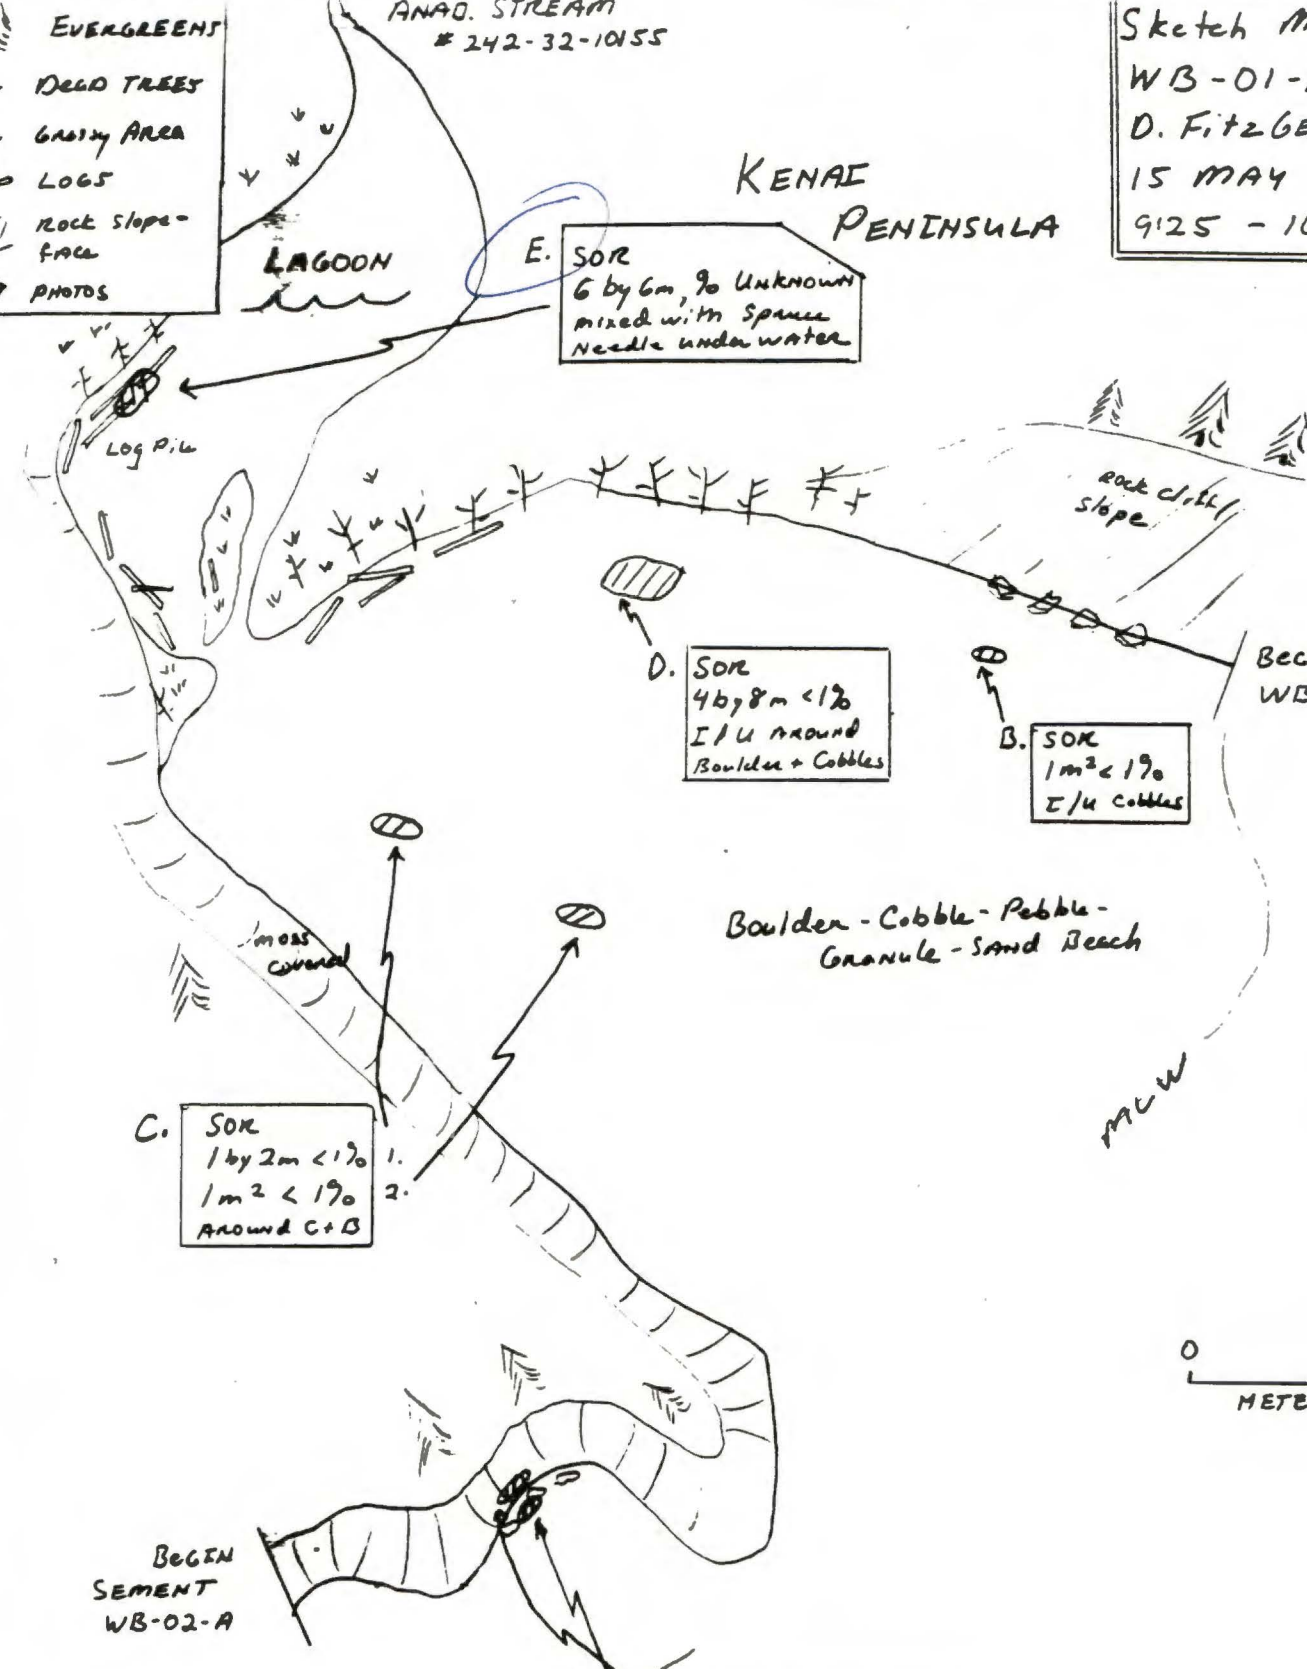 EVERGREENS
DEAD TREES
Grassy Area
LOGS
Rock slope-
face
PHOTOS
ANAD. STREAM
# 242-32-10155
Sketch
WB-01-
D. FitzGe
15 MAY
9:25 - 10
KENAI
PENINSULA
LAGOON
E.
SOR
6 by 6m, % UNKNOWN
mixed with Spruce
Needle under water
Log Pile
Rock cliff/
slope
D.
SOR
4 by 8m <1%
I/U AROUND
Boulder + Cobbles
Beg
WB
B.
SOR
1m² < 1%
I/U Cobbles
Boulder - Cobble - Pebble -
Granule - SAND Beach
moss
covered
C.
SOR
1 by 2m <1% 1.
1m² < 1% 2.
AROUND C+B
0
METE
BEGIN
SEMENT
WB-02-A